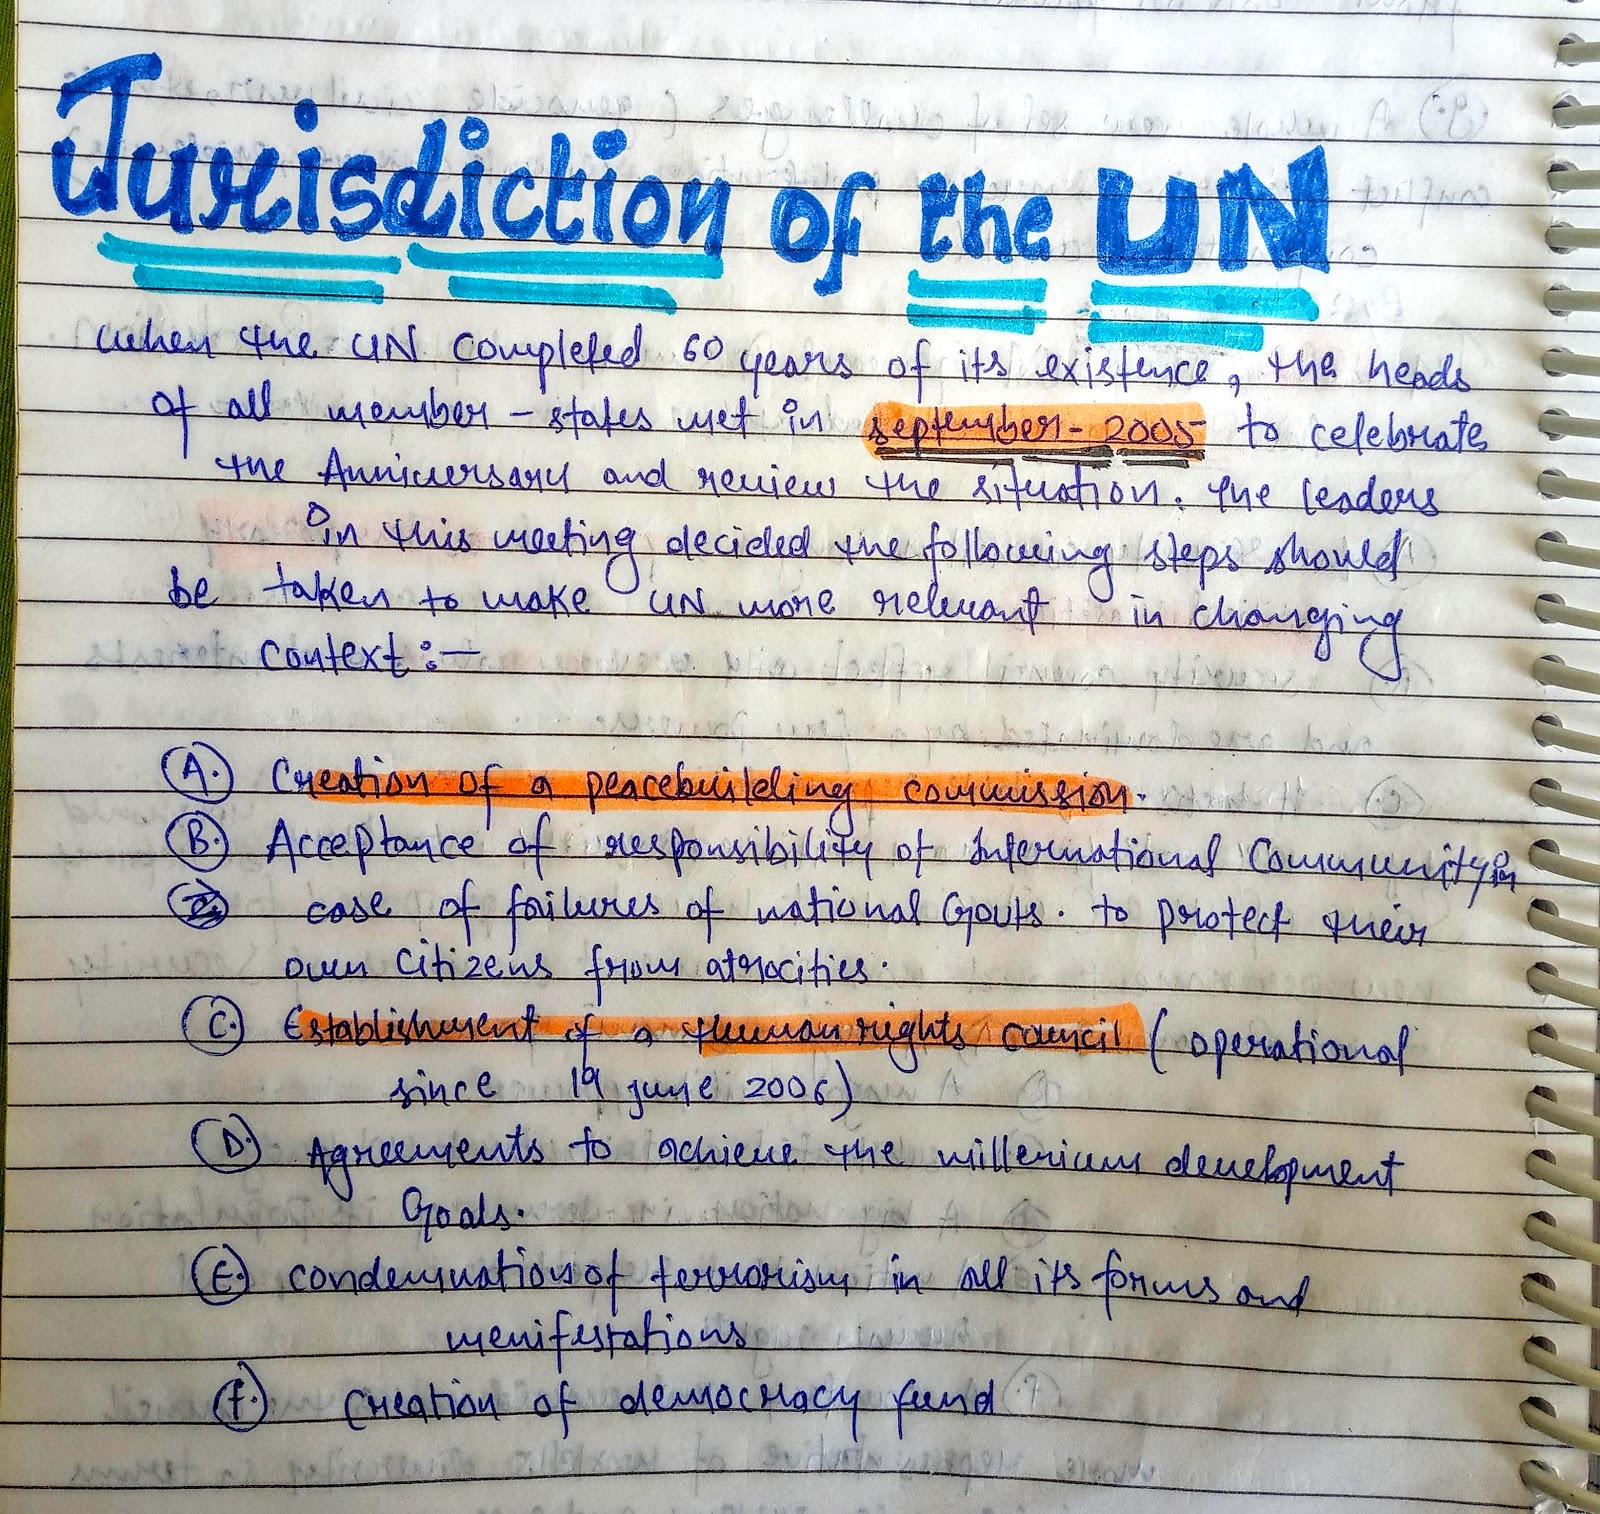 Jurisdiction of the UN
When the UN completed 60 years of its existence, the heads
of all member - states met in september - 2005 to celebrate
the Anniversary and review the situation. The leaders
in this meeting decided the following steps should
be taken to make UN more relevant in changing
context :-
A. Creation of a peacebuilding commission.
B. Acceptance of responsibility of International Community in
case of failures of national Govts. to protect their
own citizens from atrocities.
C. Establishment of a Human rights council ( operational
since 19 june 2006)
D. Agreements to achieve the millenium development
Goals.
E. condemnations of terrorism in all its forms and
menifestations
f. creation of democracy fund